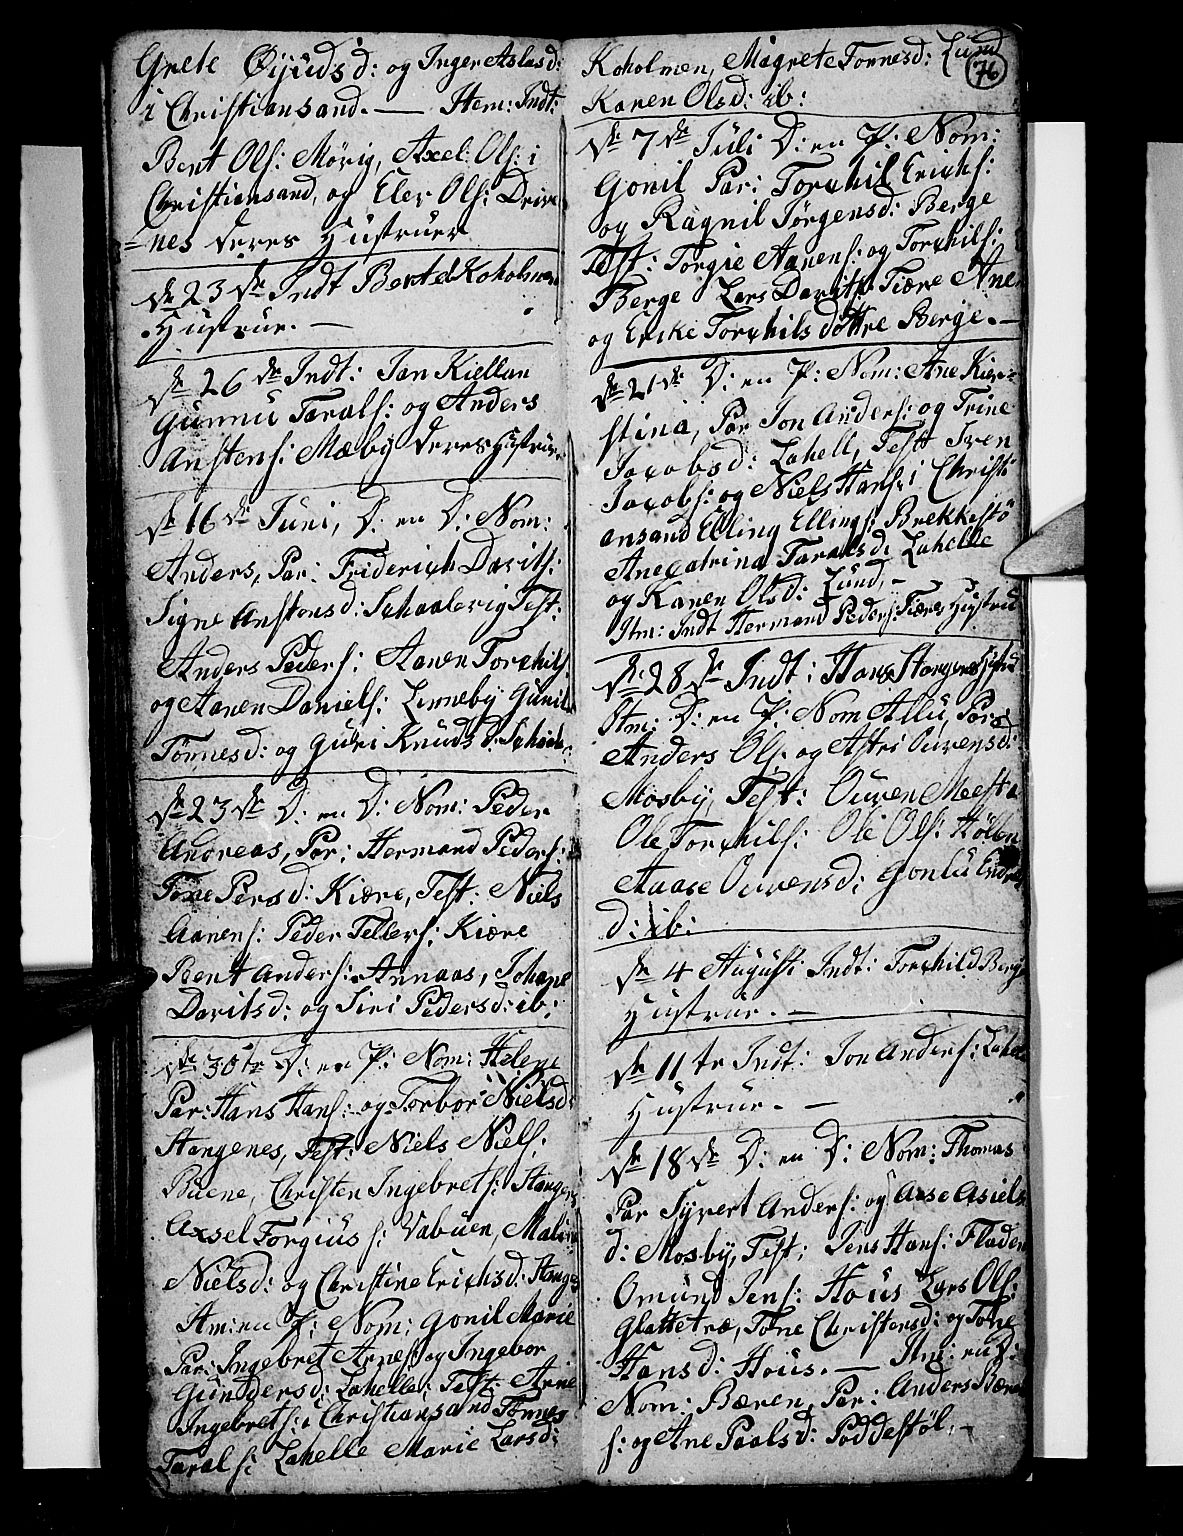 Grete Øijuds d: og Inger Aslas d:
i Christiansand. — Item: Indt:
Bent Ols: Mørig, Axel Ols: i
Christiansand, og Eler Ols: Drive
=nes deres Hustruer
d. 23de Indt Bertel Koholmen
Hustrue. —
d. 26de Indt: Jan Kiellan
Gunnu Tarals: og Anders
Anstens: Mæby deres Hustruer
d. 16de Juni, D: en D: Nom:
Anders, Par: Friderich Davits:
Signe Anstens d: Schaalevig Test:
Anders Peders: Aanen Torchils:
og Aanen Daniels: Linneby Gunil
Tønnes d: og Guri Knuds d: Schaale
d. 23de D: en D: Nom: Peder
Andreas, Par: Hermand Peders:
Tone Pers d: Kiære, Test: Niels
Aanens: Peder Tellefs: Kiære
Bent Anders: Aanaas, Johane
Davits d: og Siri Peders d: ib:
d. 30te D: en P: Nom: Helene
Par: Hans Hans: og Torbor Niels d:
Stangenes, Test: Niels Niels:
Buene, Christen Ingebrets: Stangenes
Axsel Torgius s: Vabuen, Malene
Niels d: og Christine Erichs d: Stangs
Itm: en P: Nom: Gonil Marie
Par: Ingebret Arnes: og Ingebor
Gunders d: Lahelle, Test: Arne
Ingebrets: i Christiansand Tønnes
Taral s: Lahelle Marie Lars d:
Koholmen, Magrete Tønnes d: Lund
76
Karen Ols d: ib:
d. 7de Juli D: en P: Nom:
Gonil Par: Torchil Erichs:
og Ragnil Jørgens d: Berge
Test: Torgie Aanens: og Torchils:
Berge Lars Davits: Tiære Ane
og Ericke Torchils døttre Berge. —
d. 21de D: en P: Nom: Ane Kier=
stina, Par Jon Anders: og Trine
Jacobs d: Lahell, Test Iven
Jacobs: og Niels Hans: i Christi
ansand Elling Ellings: Brekkestø
Anecatrina Tarals d: Lahelle
og Karen Ols d: Lund. —
Itm: Indt Hermand Peders: Kiæres Hustrue
d. 28de Indt: Hans Stangenes Hustrue
Itm: D: en P: Nom Allu, Par:
Anders Ols: og Astri Ouvens d:
Mosby, Test: Ouven Meesta
Ole Torchils: Ole Ols: Høllen
Aaase Ouvens d: Gonlu Endres
d: ib:
d. 4 Augusti Indt: Torchild Berge
Hustrue. —
d. 11te Indt: Jon Anders: Lahelle
Hustrue. —
d. 18de D: en D: Nom: Thomas
Par Syvert Anders: og Aase Asiels
d: Mosby, Test: Jens Hans: Fladen
Omund Jens: Hous Lars Ols:
Glattetræ, Tone Christens d: og Tone
Hans d: Hous. — Itm: en D:
Nom: Bæren, Par: Anders Bæren
s: og Ane Paals d: Poddestøl. —